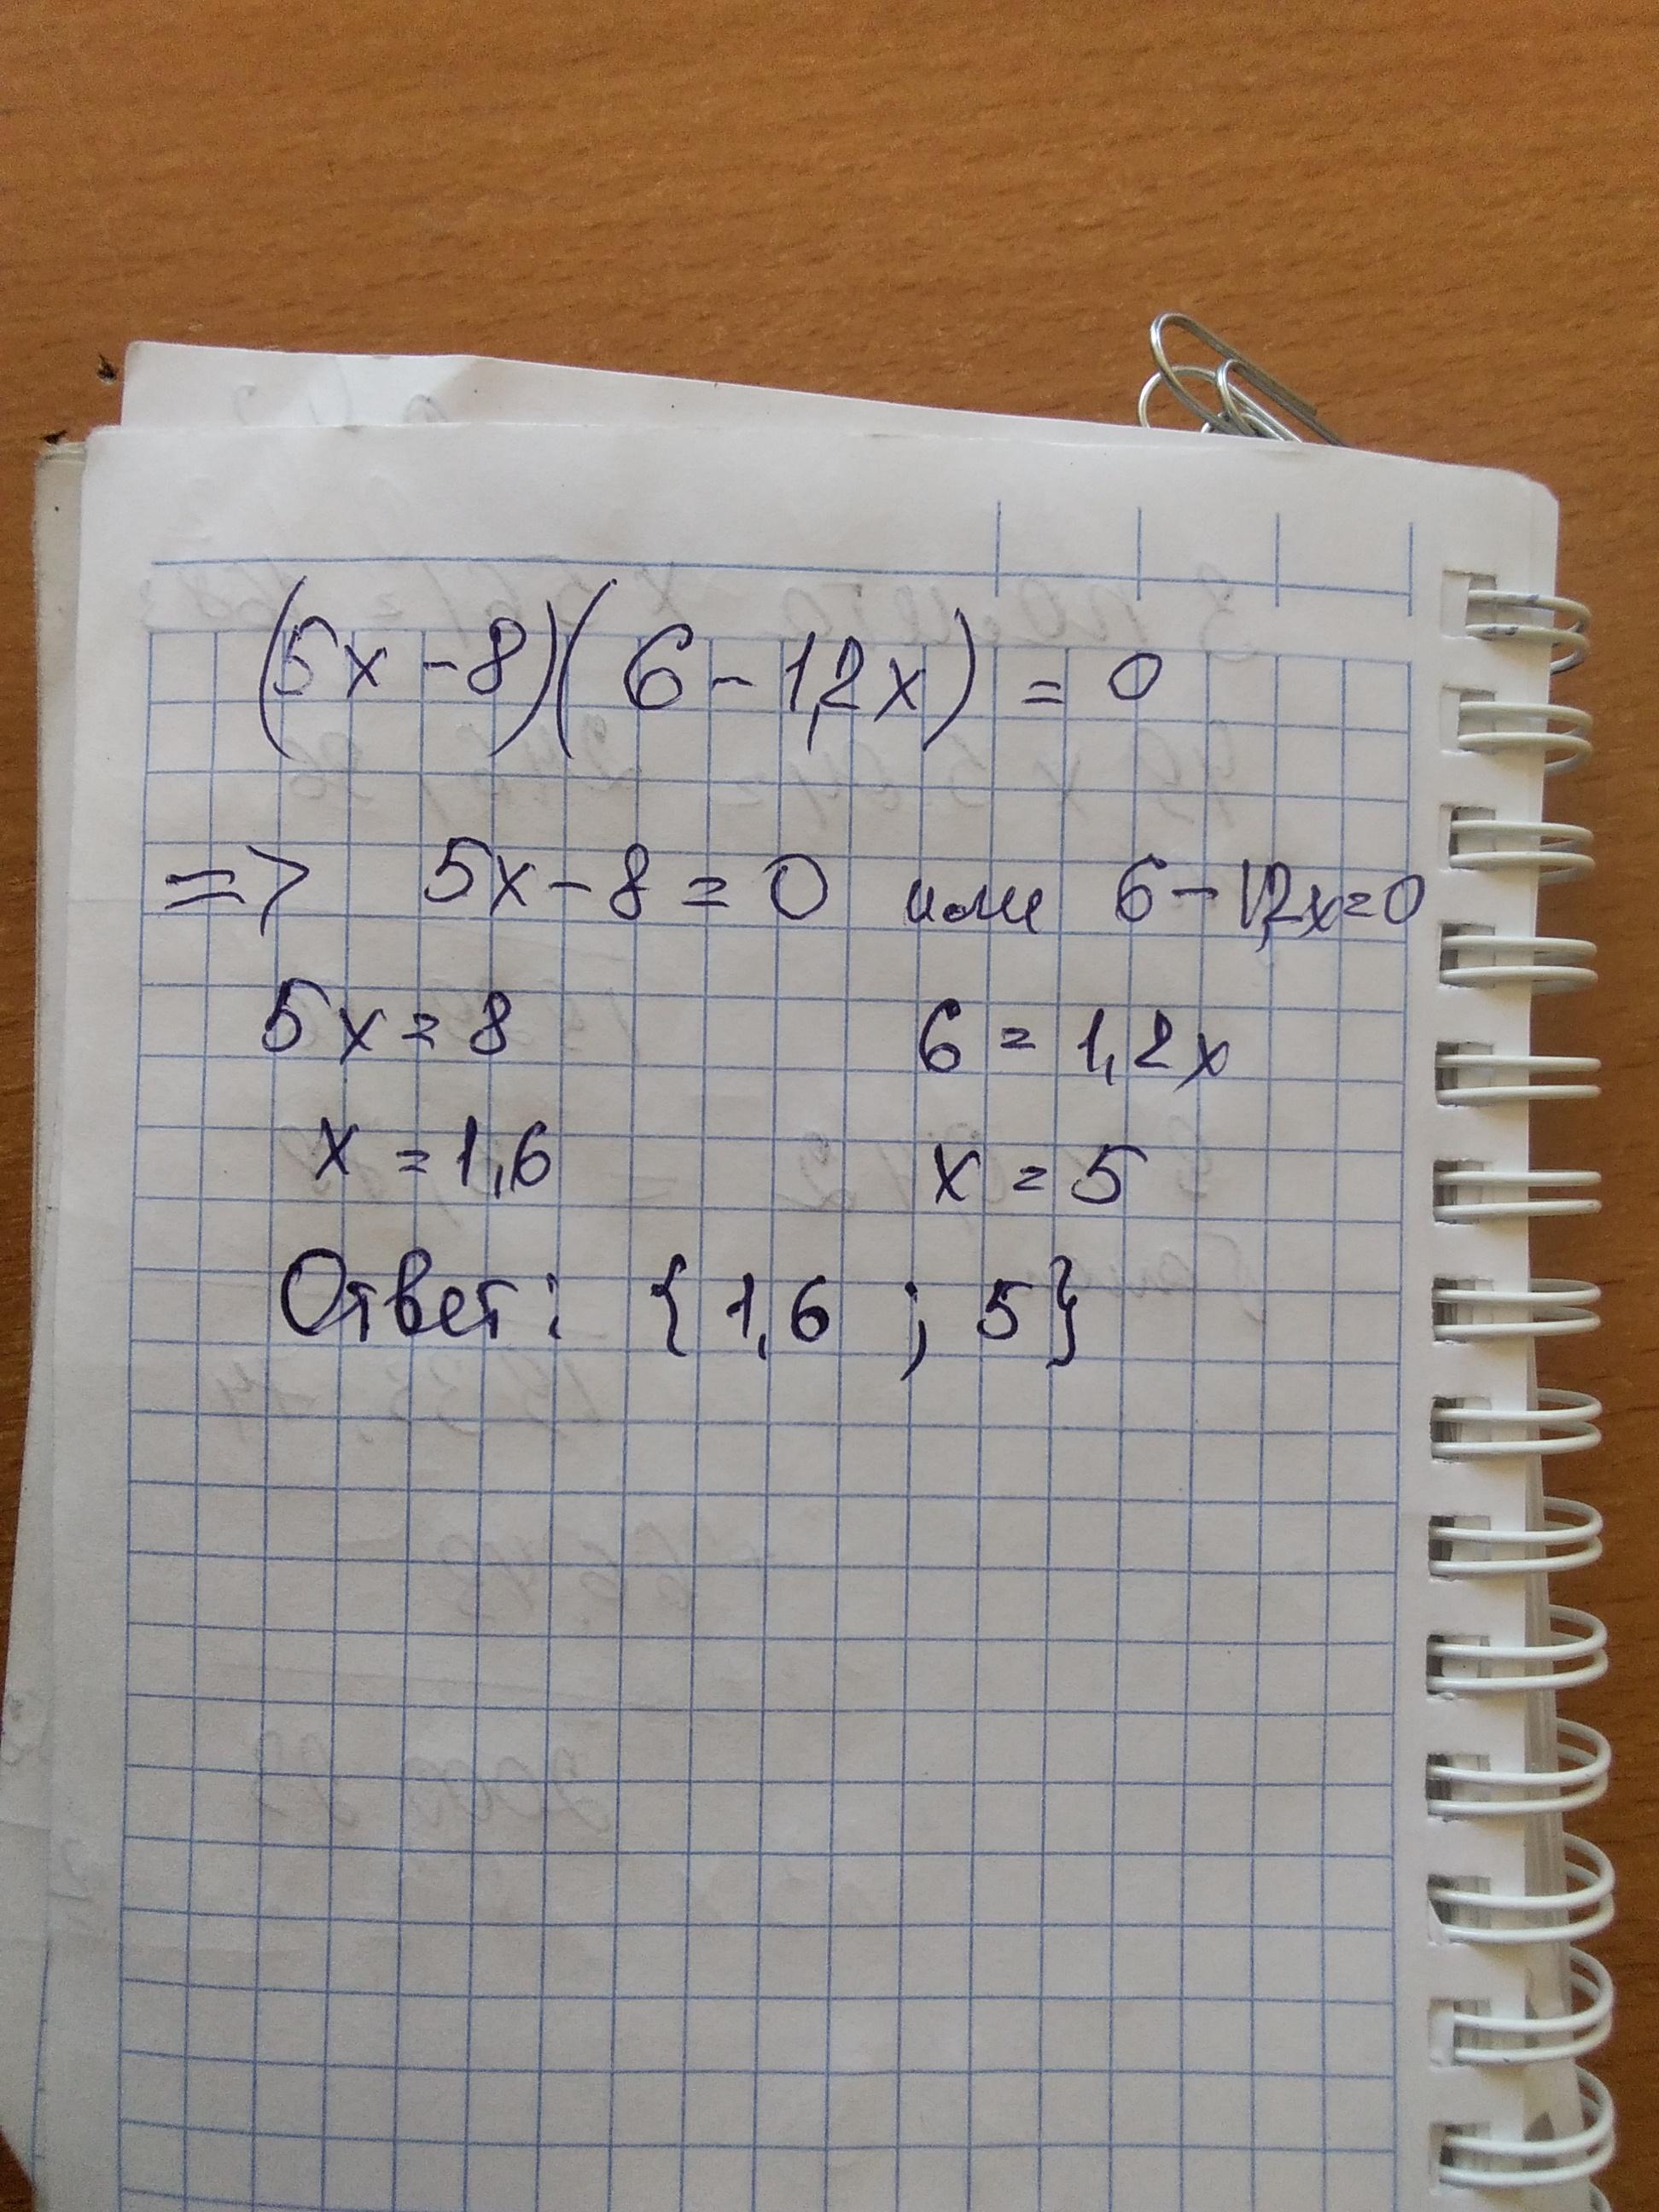 (5x-8)(6-1,2x)=0
=> 5x-8=0 или 6-1,2x=0
5x=8 6=1,2x
x=1,6 x=5
Ответ: {1,6 ; 5}